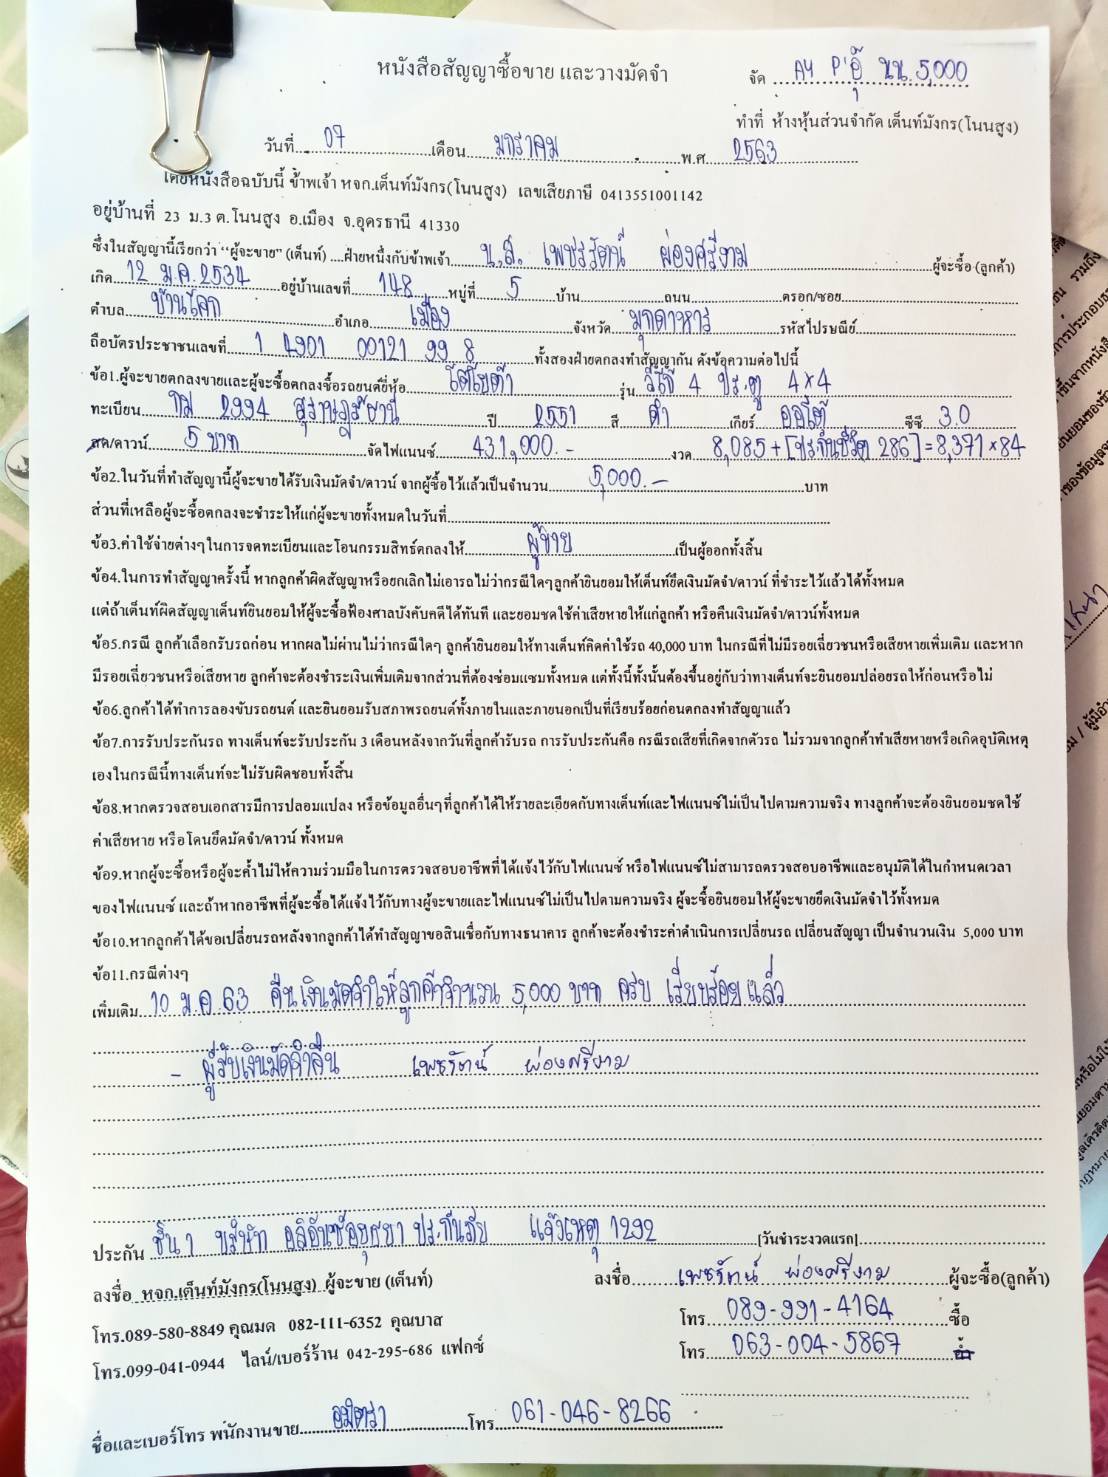 หนังสือสัญญาซื้อขาย และวางมัดจำ
จัด AY P'อุ๊ นน. 5,000
ทำที่ ห้างหุ้นส่วนจำกัด เต็นท์มังกร(โนนสูง)
วันที่ 07 เดือน มกราคม พ.ศ 2563
โดยหนังสือฉบับนี้ ข้าพเจ้า หจก.เต็นท์มังกร(โนนสูง) เลขเสียภาษี 0413551001142
อยู่บ้านที่ 23 ม.3 ต.โนนสูง อ.เมือง จ.อุดรธานี 41330
ซึ่งในสัญญานี้เรียกว่า "ผู้จะขาย" (เต็นท์) ....ฝ่ายหนึ่งกับข้าพเจ้า น.ส. เพชรรัตน์ ผ่องศรีงาม ผู้จะซื้อ (ลูกค้า)
เกิด 12 ม.ค. 2534 อยู่บ้านเลขที่ 148 หมู่ที่ 5 บ้าน ถนน ตรอก/ซอย
ตำบล บ้านโคก อำเภอ เมือง จังหวัด มุกดาหาร รหัสไปรษณีย์
ถือบัตรประชาชนเลขที่ 1 4901 00121 99 8 ทั้งสองฝ่ายตกลงทำสัญญากัน ดังข้อความต่อไปนี้
ข้อ1.ผู้จะขายตกลงขายและผู้จะซื้อตกลงซื้อรถยนต์ยี่ห้อ โตโยต้า รุ่น วีโก้ 4 ประตู 4×4
ทะเบียน กม 2994 สุราษฎร์ธานี ปี 2551 สี ดำ เกียร์ ออโต้ ซีซี 3.0
สด/ดาวน์ 5 บาท จัดไฟแนนซ์ 431,000.- งวด 8,085+[ประกันชีวิต 286]=8,371×84
ข้อ2.ในวันที่ทำสัญญานี้ผู้จะขายได้รับเงินมัดจำ/ดาวน์ จากผู้ซื้อไว้แล้วเป็นจำนวน 5,000.- บาท
ส่วนที่เหลือผู้จะซื้อตกลงจะชำระให้แก่ผู้จะขายทั้งหมดในวันที่
ข้อ3.ค่าใช้จ่ายต่างๆในการจดทะเบียนและโอนกรรมสิทธ์ตกลงให้ ผู้ขาย เป็นผู้ออกทั้งสิ้น
ข้อ4.ในการทำสัญญาครั้งนี้ หากลูกค้าผิดสัญญาหรือยกเลิกไม่เอารถไม่ว่ากรณีใดๆลูกค้ายินยอมให้เต็นท์ยึดเงินมัดจำ/ดาวน์ ที่ชำระไว้แล้วได้ทั้งหมด
แต่ถ้าเต็นท์ผิดสัญญาเต็นท์ยินยอมให้ผู้จะซื้อฟ้องศาลบังคับคดีได้ทันที และยอมชดใช้ค่าเสียหายให้แก่ลูกค้า หรือคืนเงินมัดจำ/ดาวน์ทั้งหมด
ข้อ5.กรณี ลูกค้าเลือกรับรถก่อน หากผลไม่ผ่านไม่ว่ากรณีใดๆ ลูกค้ายินยอมให้ทางเต็นท์คิดค่าใช้รถ 40,000 บาท ในกรณีที่ไม่มีรอยเฉี่ยวชนหรือเสียหายเพิ่มเติม และหาก
มีรอยเฉี่ยวชนหรือเสียหาย ลูกค้าจะต้องชำระเงินเพิ่มเติมจากส่วนที่ต้องซ่อมแซมทั้งหมด แต่ทั้งนี้ทั้งนั้นต้องขึ้นอยู่กับว่าทางเต็นท์จะยินยอมปล่อยรถให้ก่อนหรือไม่
ข้อ6.ลูกค้าได้ทำการลองขับรถยนต์ และยินยอมรับสภาพรถยนต์ทั้งภายในและภายนอกเป็นที่เรียบร้อยก่อนตกลงทำสัญญาแล้ว
ข้อ7.การรับประกันรถ ทางเต็นท์จะรับประกัน 3 เดือนหลังจากวันที่ลูกค้ารับรถ การรับประกันคือ กรณีรถเสียที่เกิดจากตัวรถ ไม่รวมจากลูกค้าทำเสียหายหรือเกิดอุบัติเหตุ
เองในกรณีนี้ทางเต็นท์จะไม่รับผิดชอบทั้งสิ้น
ข้อ8.หากตรวจสอบเอกสารมีการปลอมแปลง หรือข้อมูลอื่นๆที่ลูกค้าได้ให้รายละเอียดกับทางเต็นท์และไฟแนนซ์ไม่เป็นไปตามความจริง ทางลูกค้าจะต้องยินยอมชดใช้
ค่าเสียหาย หรือโดนยึดมัดจำ/ดาวน์ ทั้งหมด
ข้อ9.หากผู้จะซื้อหรือผู้จะค้ำไม่ให้ความร่วมมือในการตรวจสอบอาชีพที่ได้แจ้งไว้กับไฟแนนซ์ หรือไฟแนนซ์ไม่สามารถตรวจสอบอาชีพและอนุมัติได้ในกำหนดเวลา
ของไฟแนนซ์ และถ้าหากอาชีพที่ผู้จะซื้อได้แจ้งไว้กับทางผู้จะขายและไฟแนนซ์ไม่เป็นไปตามความจริง ผู้จะซื้อยินยอมให้ผู้จะขายยึดเงินมัดจำไว้ทั้งหมด
ข้อ10.หากลูกค้าได้ขอเปลี่ยนรถหลังจากลูกค้าได้ทำสัญญาขอสินเชื่อกับทางธนาคาร ลูกค้าจะต้องชำระค่าดำเนินการเปลี่ยนรถ เปลี่ยนสัญญา เป็นจำนวนเงิน 5,000 บาท
ข้อ11.กรณีต่างๆ
เพิ่มเติม 10 ม.ค. 63 คืนเงินมัดจำให้ลูกค้าจำนวน 5,000 บาท ครบ เรียบร้อย แล้ว
- ผู้รับเงินมัดจำคืน เพชรรัตน์ ผ่องศรีงาม
ประกัน ชั้น 1 บริษัท อลิอันซ์อยุธยา ประกันภัย แจ้งเหตุ 1292 [วันชำระงวดแรก]
ลงชื่อ หจก.เต็นท์มังกร(โนนสูง) ผู้จะขาย (เต็นท์) ลงชื่อ เพชรรัตน์ ผ่องศรีงาม ผู้จะซื้อ(ลูกค้า)
โทร.089-580-8849 คุณมด 082-111-6352 คุณบาส โทร 089-991-4164 ซื้อ
โทร.099-041-0944 ไลน์/เบอร์ร้าน 042-295-686 แฟกซ์ โทร 063-004-5867
ชื่อและเบอร์โทร พนักงานขาย อมิตรา โทร 061-046-8266